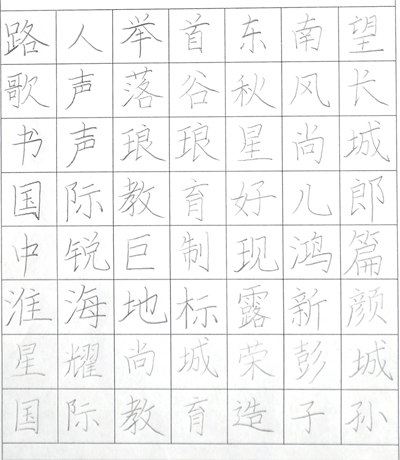 路人举首东南望
歌声落谷秋风长
书声琅琅星尚城
国际教育好儿郎
中锐巨制现鸿篇
淮海地标露新颜
星耀尚城荣彭城
国际教育造子孙